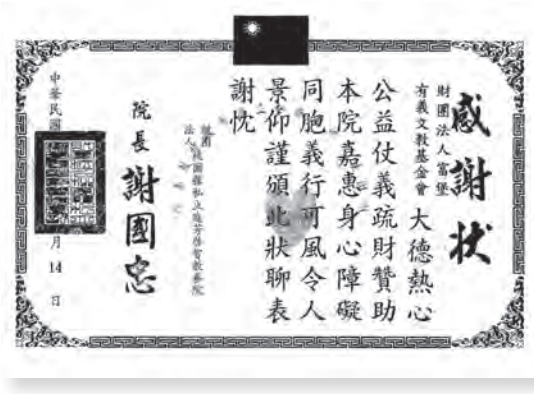 感謝狀
財團法人富堡
有義文教基金會 大德熱心
公益仗義疏財贊助
本院嘉惠身心障礙
同胞義行可風令人
景仰謹頒此狀聊表
謝忱
財團
法人桃園縣私立庭芳啓智教養院
院長 謝國忠
中華民國
月 14 日